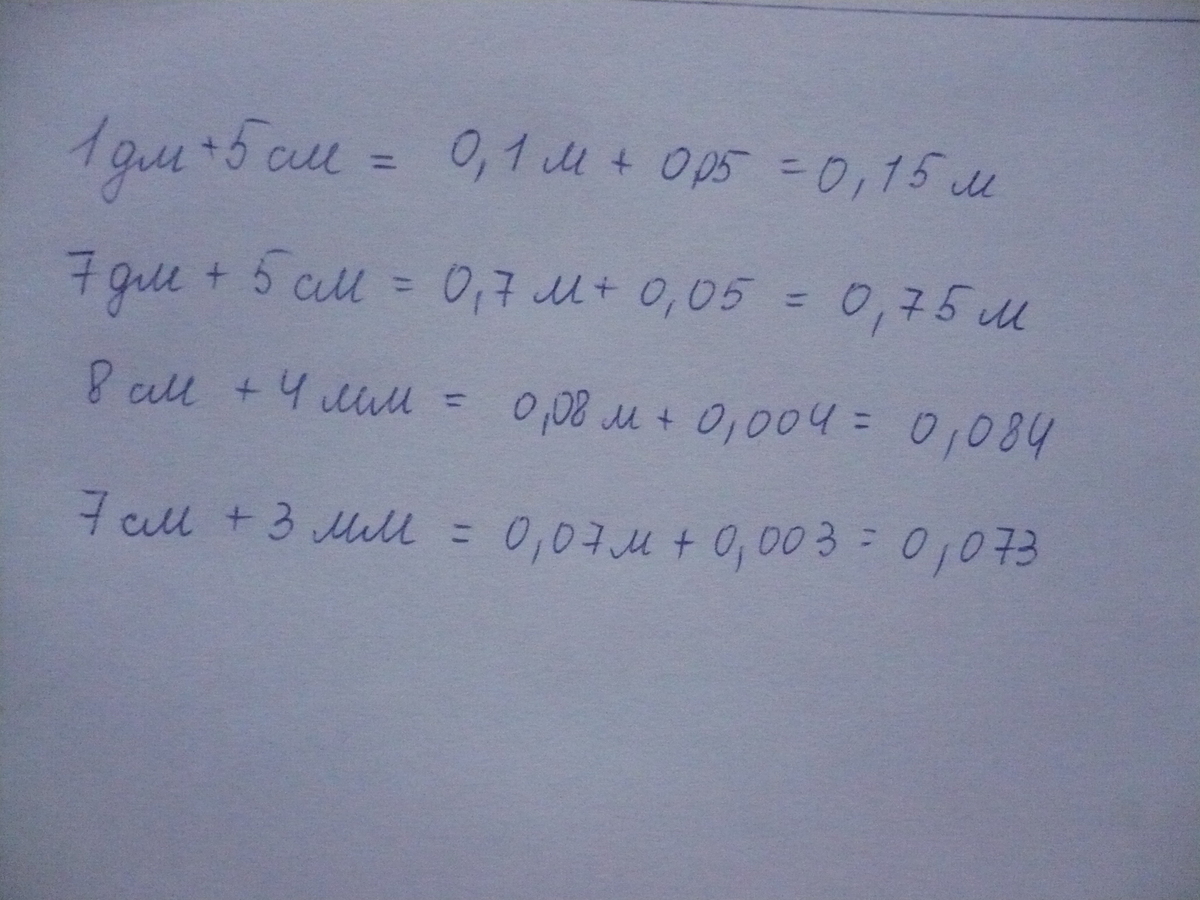 1 дм + 5 см = 0,1 м + 0,05 = 0,15 м
7 дм + 5 см = 0,7 м + 0,05 = 0,75 м
8 см + 4 мм = 0,08 м + 0,004 = 0,084
7 см + 3 мм = 0,07 м + 0,003 = 0,073